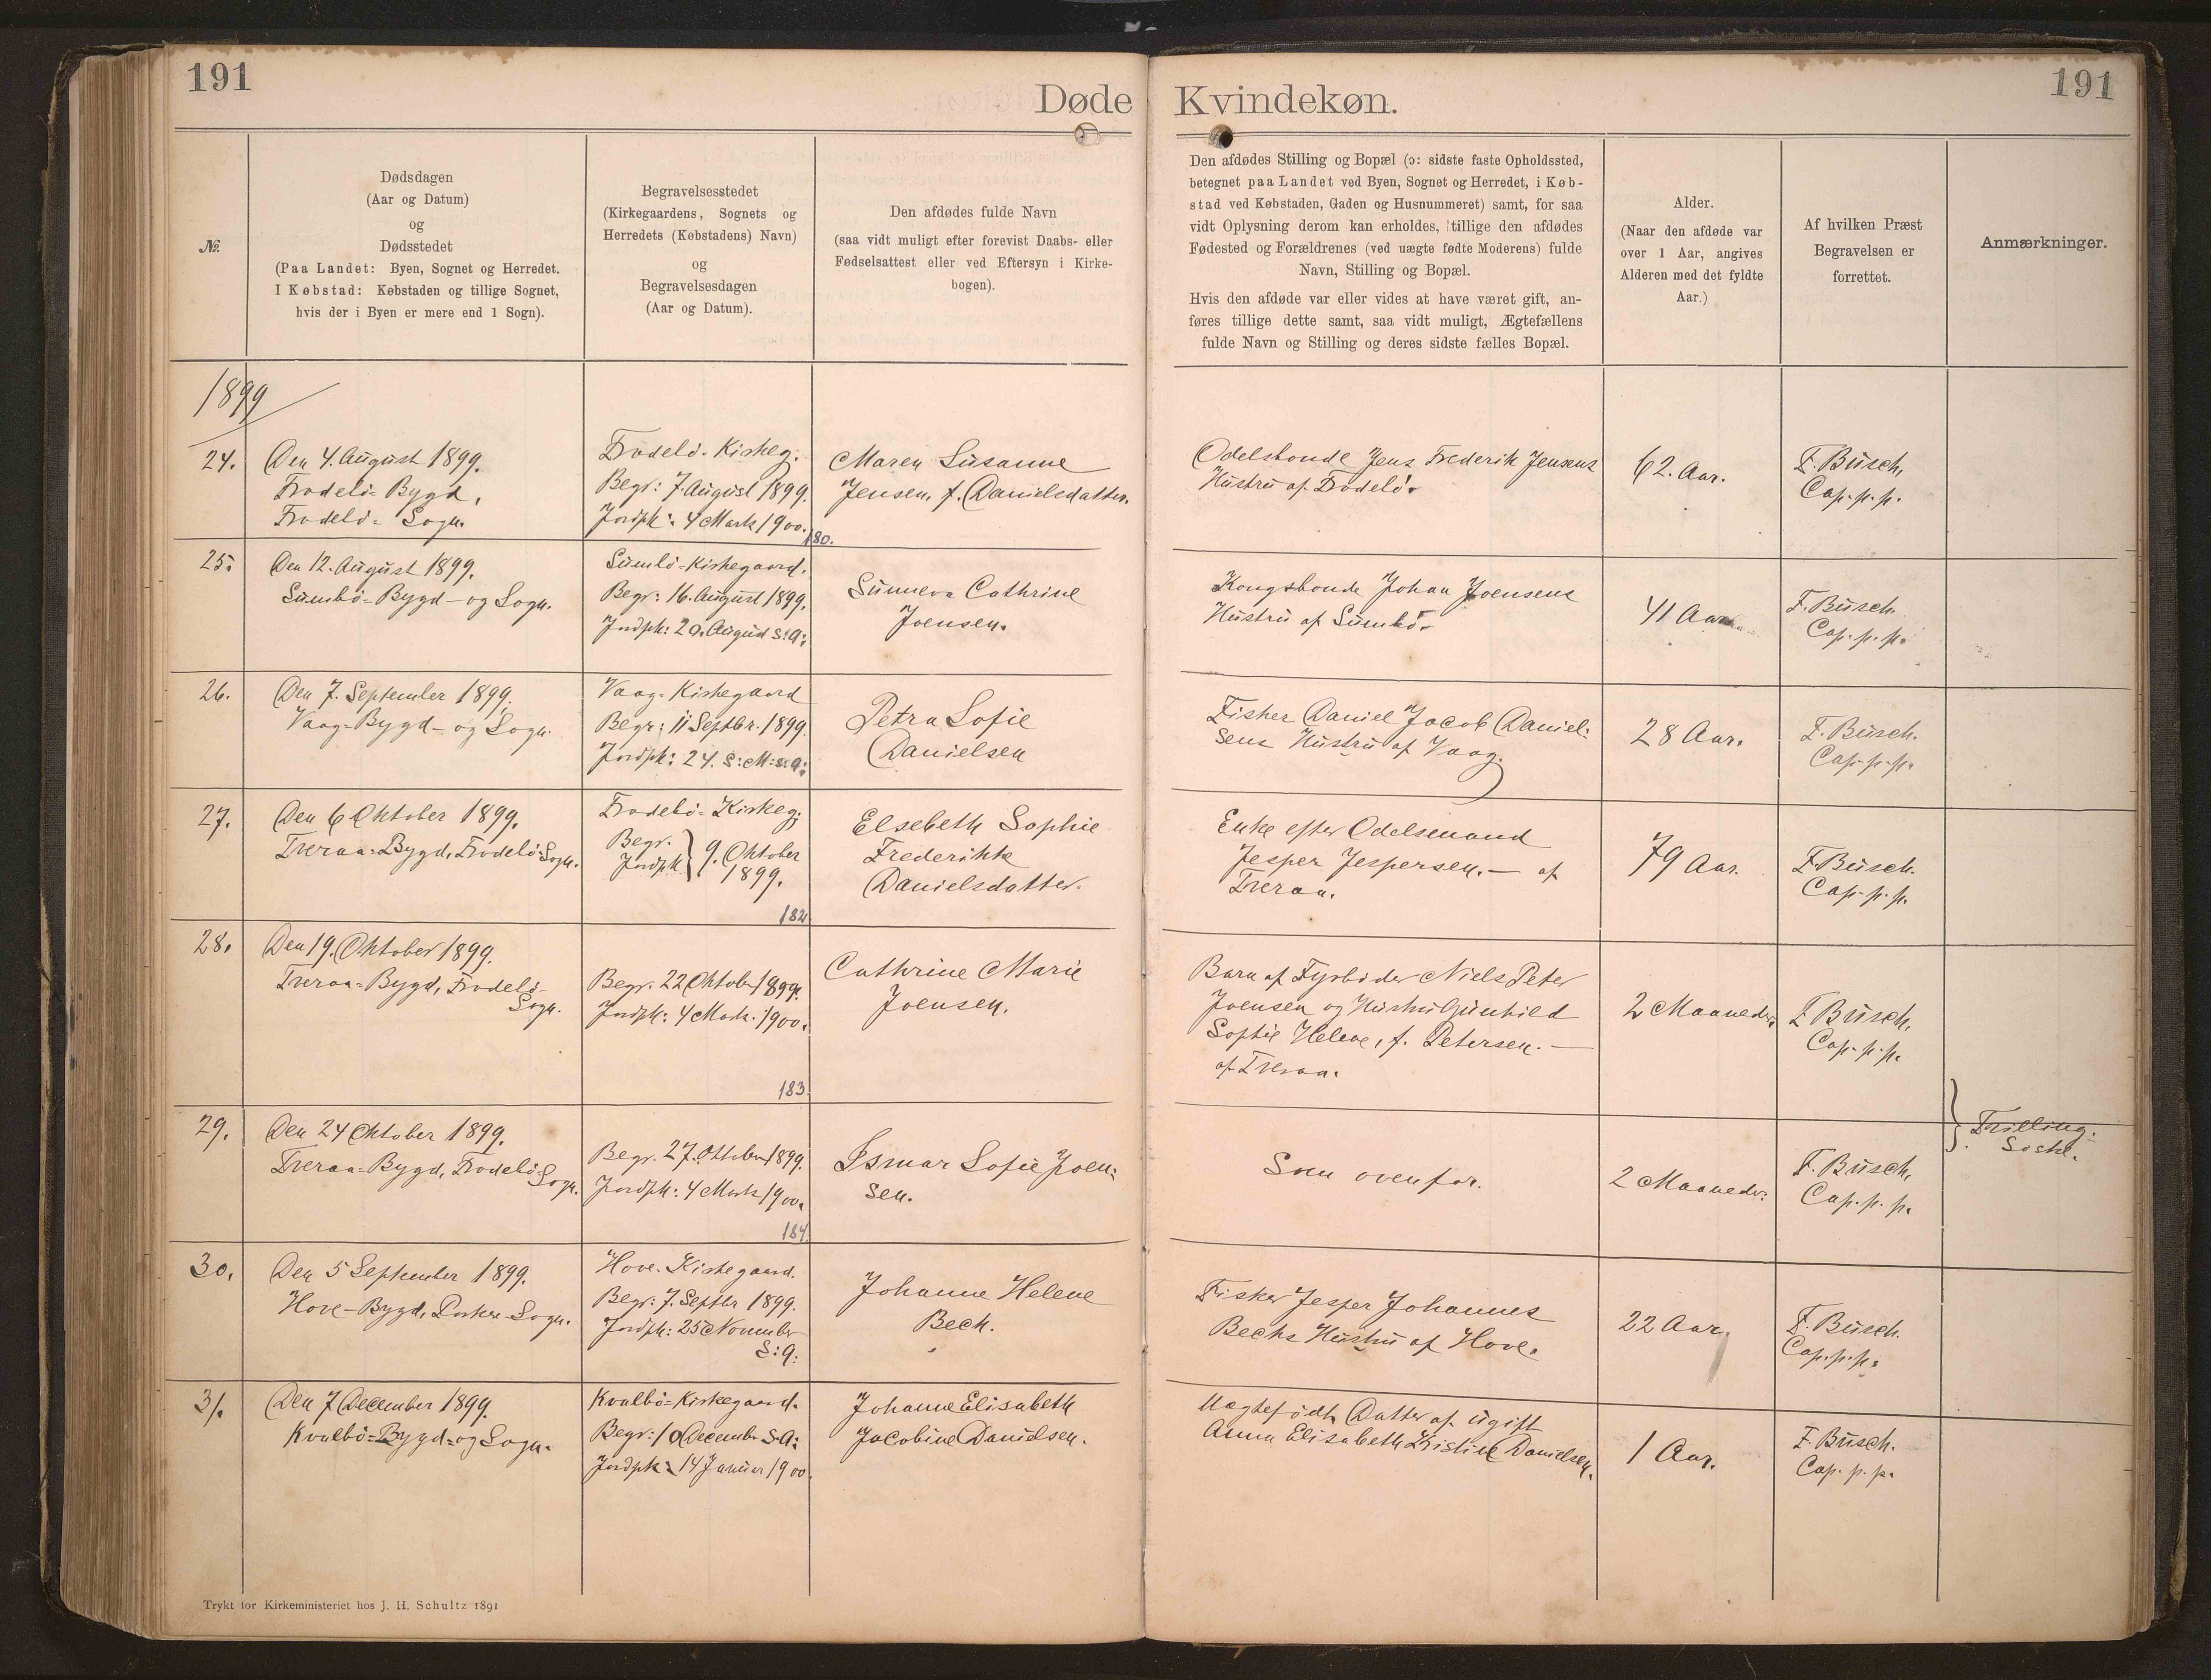 191
Døde
Kvindekøn.
191
№.
Dødsdagen
(Aar og Datum)
og
Dødsstedet
(Paa Landet: Byen, Sognet og Herredet.
I Købstad: Købstaden og tillige Sognet,
hvis der i Byen er mere end 1 Sogn).
Begravelsesstedet
(Kirkegaardens, Sognets og
Herredets (Købstadens) Navn)
og
Begravelsesdagen
(Aar og Datum).
Den afdødes fulde Navn
(saa vidt muligt efter forevist Daabs- eller
Fødselsattest eller ved Eftersyn i Kirke-
bogen).
Den afdødes Stilling og Bopæl (ɔ: sidste faste Opholdssted,
betegnet paa Landet ved Byen, Sognet og Herredet, i Køb-
stad ved Købstaden, Gaden og Husnummeret) samt, for saa
vidt Oplysning derom kan erholdes, tillige den afdødes
Fødested og Forældrenes (ved uægte fødte Moderens) fulde
Navn, Stilling og Bopæl.
Hvis den afdøde var eller vides at have været gift, an-
føres tillige dette samt, saa vidt muligt, Ægtefællens
fulde Navn og Stilling og deres sidste fælles Bopæl.
Alder.
(Naar den afdøde var
over 1 Aar, angives
Alderen med det fyldte
Aar.)
Af hvilken Præst
Begravelsen er
forrettet.
Anmærkninger.
1899
24.
Den 4. August 1899.
Frodebö-Bygd,
Frodebö-Sogn.
Frodebö-Kirkeg.
Begr: 7. August 1899.
Jordpk: 4 Marts 1900.
180.
Maren Susanne
Jensen, f. Danielsdatter.
Odelsbonde Jens Frederik Jensens
Hustru af Frodebö.
62. Aar.
F. Busch,
Cap. p. p.
25.
Den 12. August 1899.
Sumbö-Bygd- og Sogn.
Sumbö-Kirkegaard.
Begr: 16. August 1899.
Jordpk: 20. August s: A:
Sunneva Cathrine
Joensen.
Kongsbonde Johan Joensens
Hustru af Sumbö.
41 Aar
F. Busch.
Cap. p. p.
26.
Den 7. September 1899.
Vaag-Bygd- og Sogn.
Vaag-Kirkegaard
Begr: 11 Septbr. 1899.
Jordpk: 24. s: M: s: A:
Petra Sofie
Danielsen
Fisker Daniel Jacob Daniel-
sens Hustru af Vaag.
28 Aar.
F. Busch.
Cap. p. p.
27.
Den 6 Oktober 1899.
Tveraa-Bygd, Frodebö-Sogn.
Frodebö-Kirkeg.
Begr.
Jordpk } 9. Oktober
1899.
182.
Elsebeth Sophie
Frederikke
Danielsdatter.
Enke efter Odelsmand
Jesper Jespersen. – af
Tveraa.
79 Aar.
F. Busch.
Cap. p. p.
28.
Den 19. Oktober 1899.
Tveraa-Bygd, Frodebö-
Sogn.
Begr. 22 Oktober 1899.
Jordpk: 4 Marts 1900.
183.
Cathrine Marie
Joensen.
Barn af Fyrböder Niels Peter
Joensen og Hustru Gunhild
Sophie Helene, f. Petersen. –
af Tveraa.
2 Maaneder.
F. Busch,
Cap. p. p.
29.
Den 24 Oktober 1899.
Tveraa-Bygd, Frodebö-Sogn.
Begr. 27. Oktober 1899.
Jordpk: 4 Marts 1900.
184.
Ismar Sofie Joen-
sen.
Som ovenfor.
2 Maaneder.
F. Busch,
Cap. p. p.
} Trilling-
30.
Den 5 September 1899.
Hove-Bygd, Porkere-Sogn.
Hove-Kirkegaard.
Begr: 7. Septbr 1899.
Jordpk: 25 November
s: A:
Johanne Helene
Bech.
Fisker Jesper Johannes
Bechs Hustru af Hove.
22 Aar.
F. Busch.
Cap. p. p.
31.
Den 7 December 1899.
Kvalbö-Bygd- og Sogn.
Kvalbö-Kirkegaard.
Begr: 10 Decembr s: A:
Jordpk: 14 Januar 1900.
Johanne Elisabeth
Jacobine Danielsen.
Uægtefødt Datter af ugift
Anna Elisabeth Kristine Danielsen.
1 Aar.
F. Busch.
Cap. p. p.
Trykt for Kirkeministeriet hos J. H. Schultz 1891